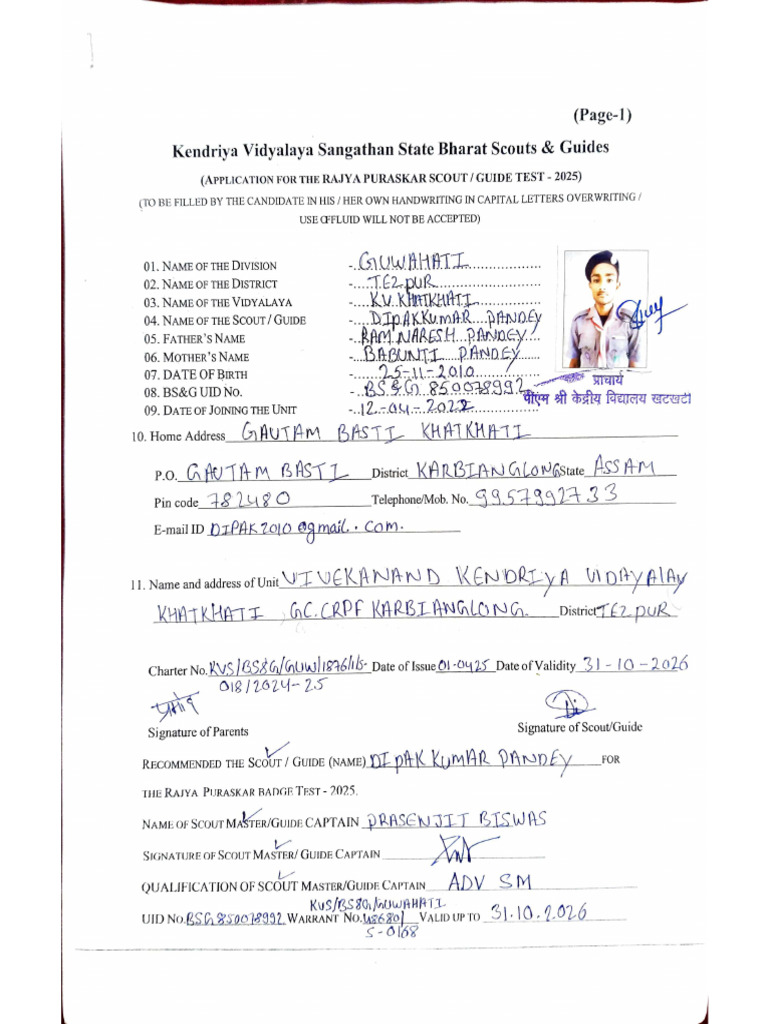 (Page-1)
Kendriya Vidyalaya Sangathan State Bharat Scouts & Guides
(APPLICATION FOR THE RAJYA PURASKAR SCOUT / GUIDE TEST - 2025)
(TO BE FILLED BY THE CANDIDATE IN HIS / HER OWN HANDWRITING IN CAPITAL LETTERS OVERWRITING /
USE OFFLUID WILL NOT BE ACCEPTED)
01. NAME OF THE DIVISION - GUWAHATI
02. NAME OF THE DISTRICT - TEZPUR
03. NAME OF THE VIDYALAYA - KV. KHATKHATI
04. NAME OF THE SCOUT / GUIDE - DIPAKKUMAR PANDEY
05. FATHER'S NAME - RAM NARESH PANDEY
06. MOTHER'S NAME - BABUNTI PANDEY
07. DATE OF BIRTH - 25-11-2010
08. BS&G UID NO. - BS&G 850078992
09. DATE OF JOINING THE UNIT - 12-04-2022
प्राचार्य
पीएम श्री केंद्रीय विद्यालय खटखटी
10. Home Address GAUTAM BASTI KHATKHATI
P.O. GAUTAM BASTI District KARBIANGLONG State ASSAM
Pin code 782480 Telephone/Mob. No. 9957992733
E-mail ID DIPAK2010@gmail.com.
11. Name and address of Unit VIVEKANAND KENDRIYA VIDAYALAY
KHATKHATI GC.CRPF KARBIANGLONG District TEZPUR
Charter No. KVS/BS&G/GUW/1876/16- Date of Issue 01-0425 Date of Validity 31-10-2026
018/2024-25
Signature of Parents Signature of Scout/Guide
RECOMMENDED THE SCOUT / GUIDE (NAME) DIPAK KUMAR PANDEY FOR
THE RAJYA PURASKAR BADGE TEST - 2025.
NAME OF SCOUT MASTER/GUIDE CAPTAIN PRASENJIT BISWAS
SIGNATURE OF SCOUT MASTER/ GUIDE CAPTAIN
QUALIFICATION OF SCOUT MASTER/GUIDE CAPTAIN ADV SM
KVS/BS&G/GUWAHATI
UID NO. BSG850078992 WARRANT NO. 48680/ VALID UP TO 31.10.2026
S-0168